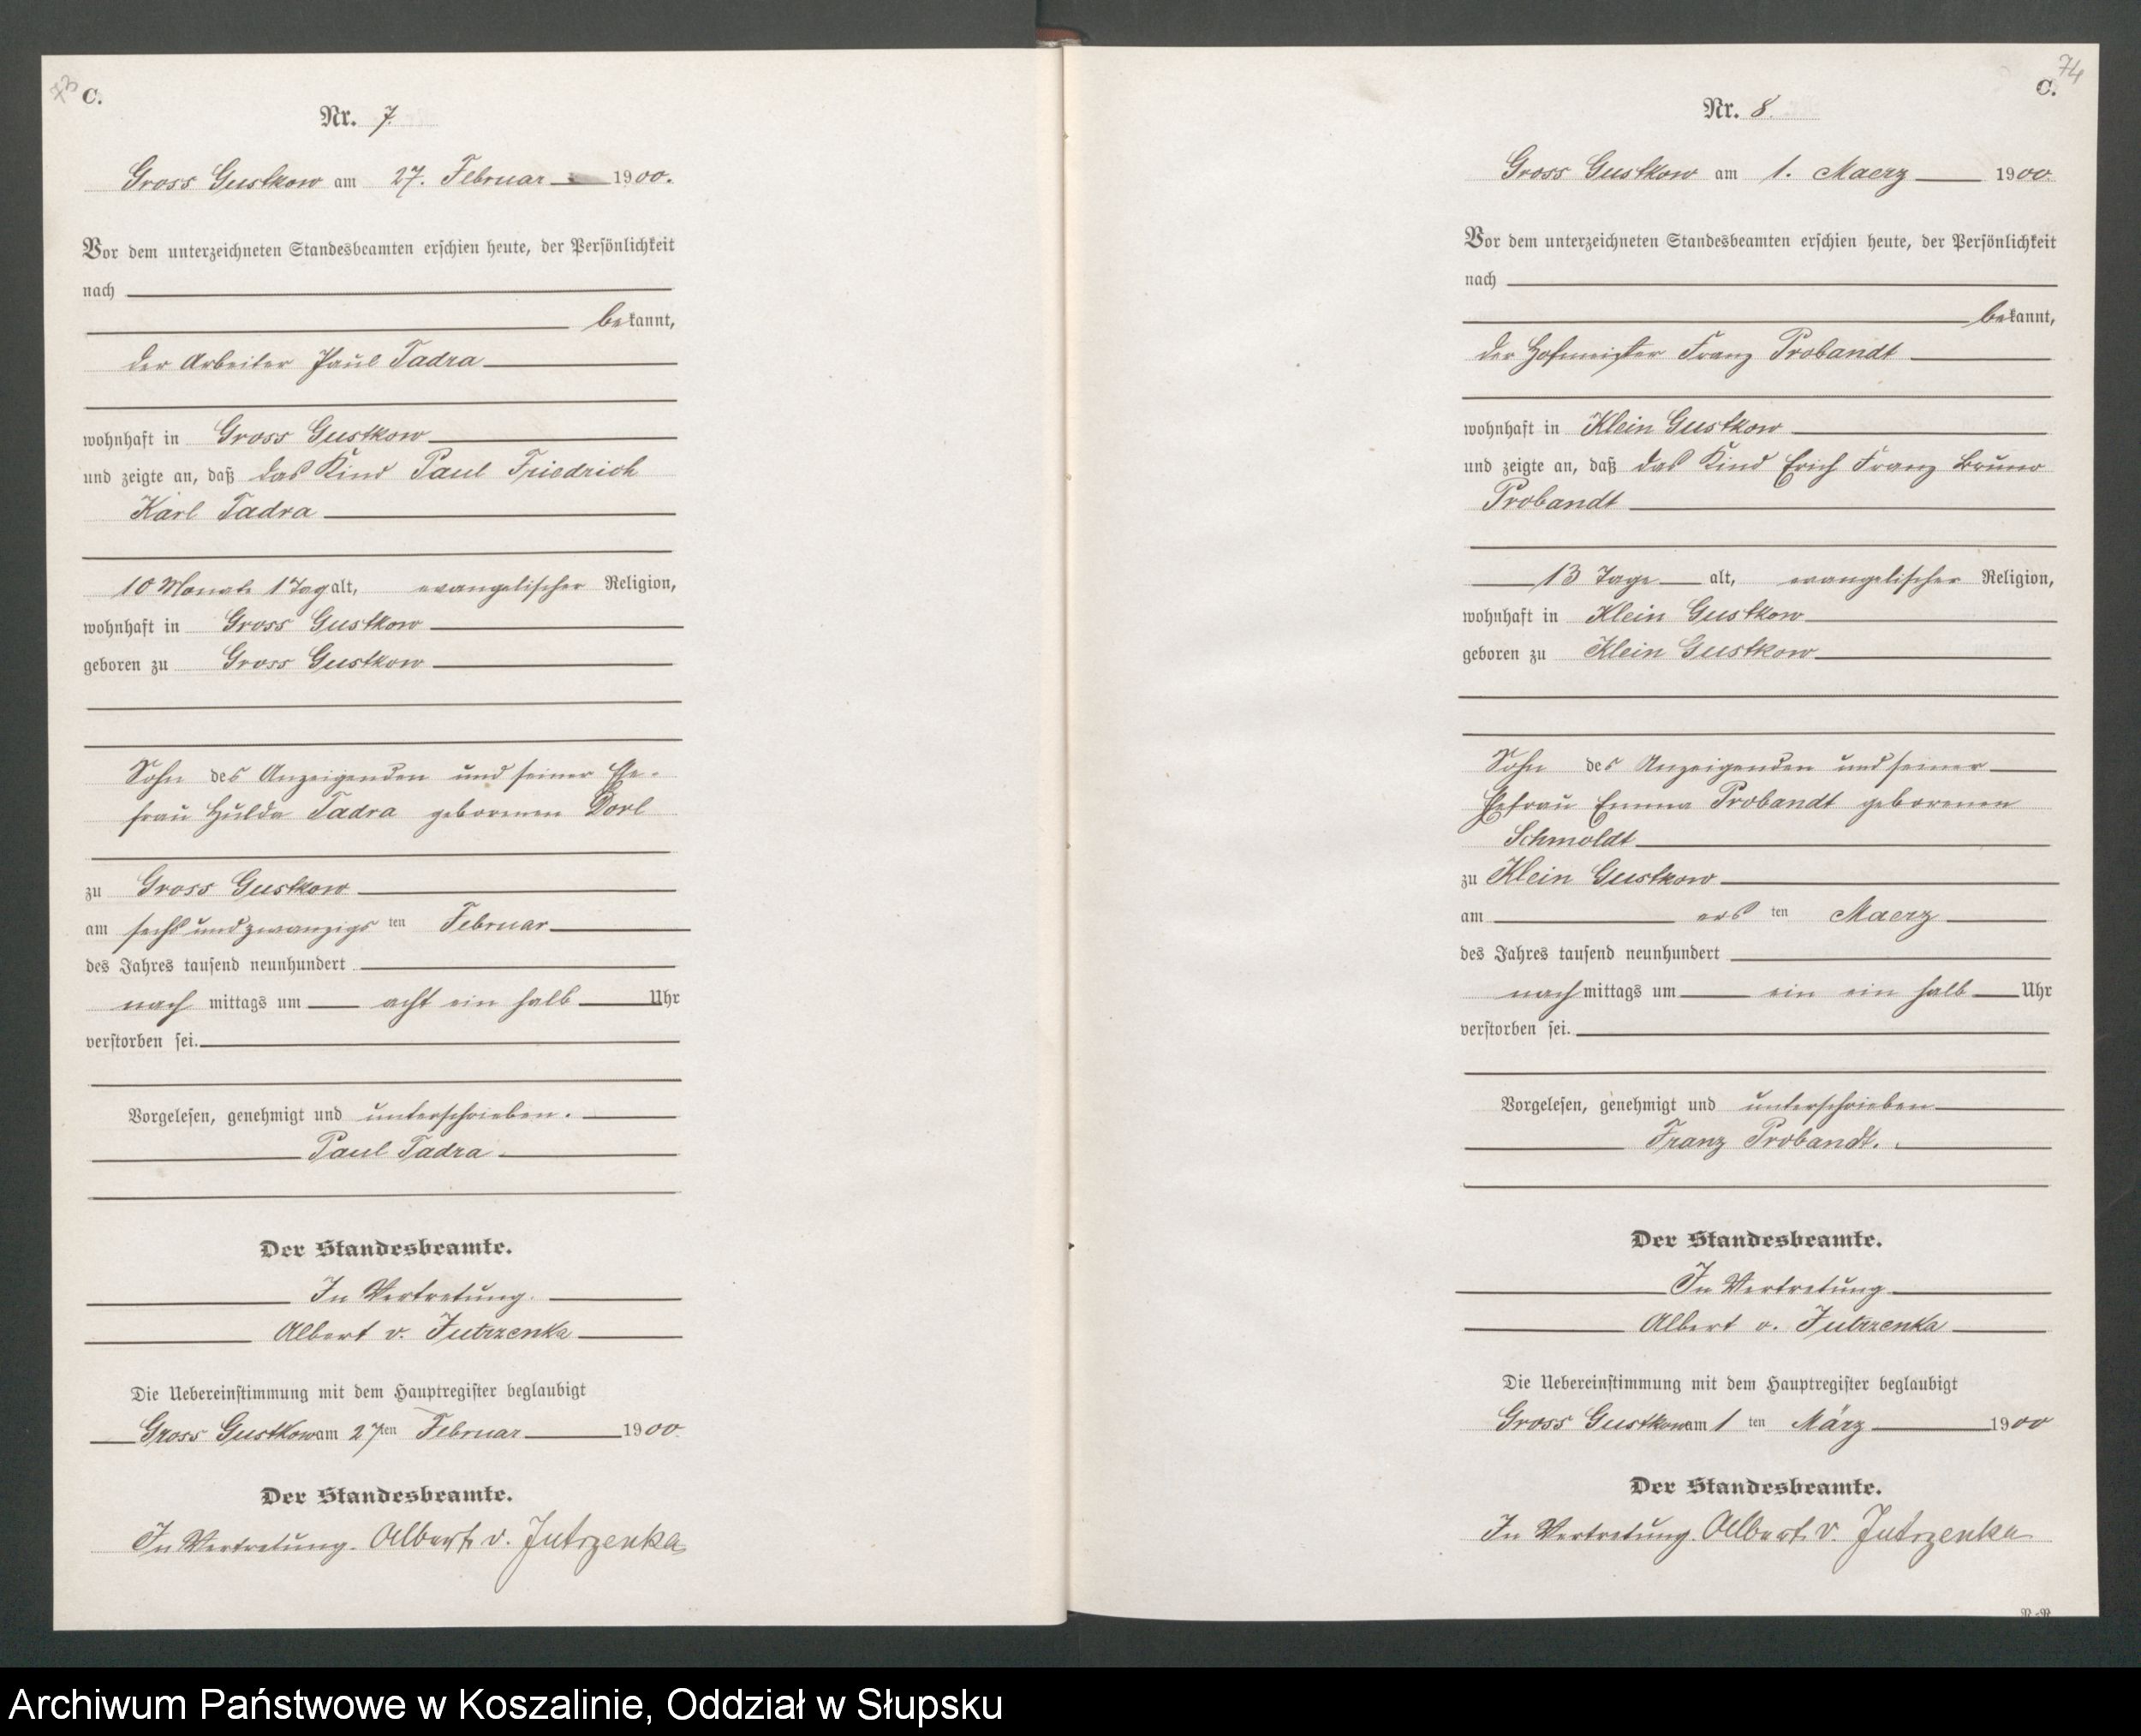 73
C.
Nr. 7.
Gross Gustkow am 27. Februar 1900.
Vor dem unterzeichneten Standesbeamten erschien heute, der Persönlichkeit
nach
bekannt,
der Arbeiter Paul Tadra
wohnhaft in Gross Gustkow
und zeigte an, daß das Kind Paul Friedrich
Karl Tadra
10 Monate 1 Tag alt, evangelischer Religion,
wohnhaft in Gross Gustkow
geboren zu Gross Gustkow
Sohn des Anzeigenden und seiner Ehe-
frau Hulda Tadra geborenen Dorl
zu Gross Gustkow
am sechsundzwanzigsten Februar
des Jahres tausend neunhundert
nachmittags um acht ein halb Uhr
verstorben sei.
Vorgelesen, genehmigt und unterschrieben.
Paul Tadra
Der Standesbeamte.
In Vertretung.
Albert v. Jutrzenka
Die Uebereinstimmung mit dem Hauptregister beglaubigt
Gross Gustkow am 27ten Februar 1900.
Der Standesbeamte.
In Vertretung. Albert v. Jutrzenka
74
C.
Nr. 8.
Gross Gustkow am 1. Maerz 1900.
Vor dem unterzeichneten Standesbeamten erschien heute, der Persönlichkeit
nach
bekannt,
der Hofmeister Franz Probandt
wohnhaft in Klein Gustkow
und zeigte an, daß das Kind Erich Franz Bruno
Probandt
13 Tage alt, evangelischer Religion,
wohnhaft in Klein Gustkow
geboren zu Klein Gustkow
Sohn des Anzeigenden und seiner
Ehefrau Emma Probandt geborenen
Schmoldt
zu Klein Gustkow
am ersten Maerz
des Jahres tausend neunhundert
nachmittags um ein ein halb Uhr
verstorben sei.
Vorgelesen, genehmigt und unterschrieben
Franz Probandt.
Der Standesbeamte.
In Vertretung
Albert v. Jutrzenka
Die Uebereinstimmung mit dem Hauptregister beglaubigt
Gross Gustkow am 1ten März 1900
Der Standesbeamte.
In Vertretung. Albert v. Jutrzenka
Archiwum Państwowe w Koszalinie, Oddział w Słupsku